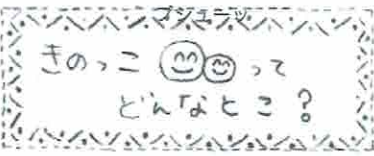 プシューッ
きのっこ って
どんなとこ？